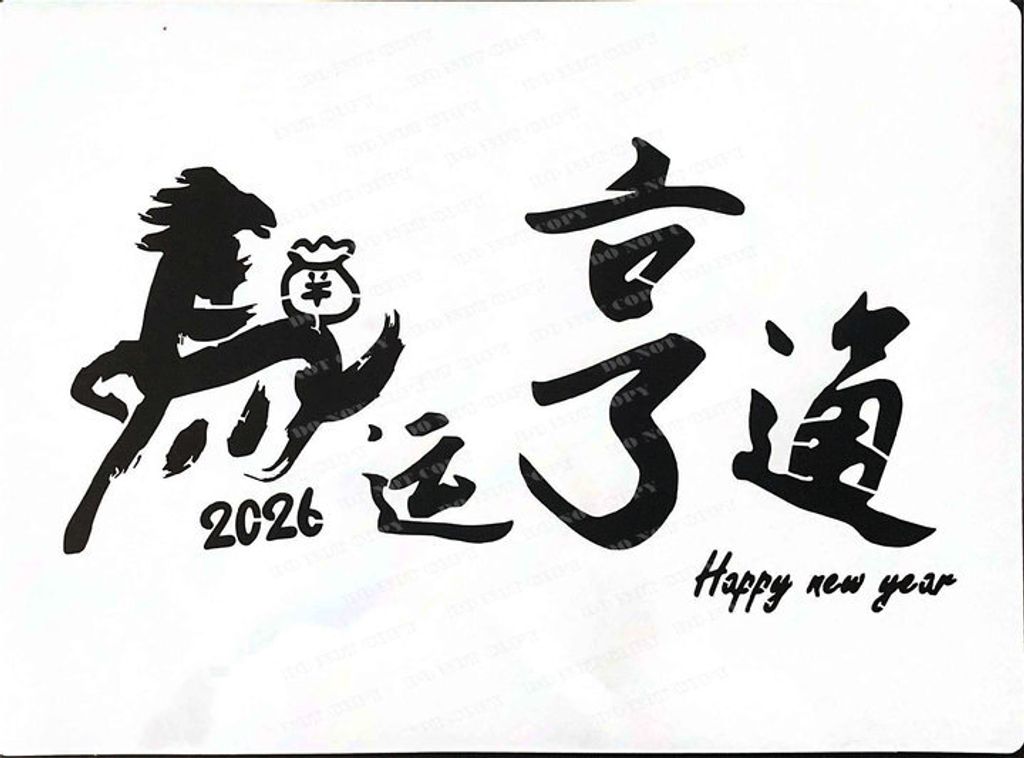 馬运亨通
¥
2026
Happy new year
DO NOT COPY